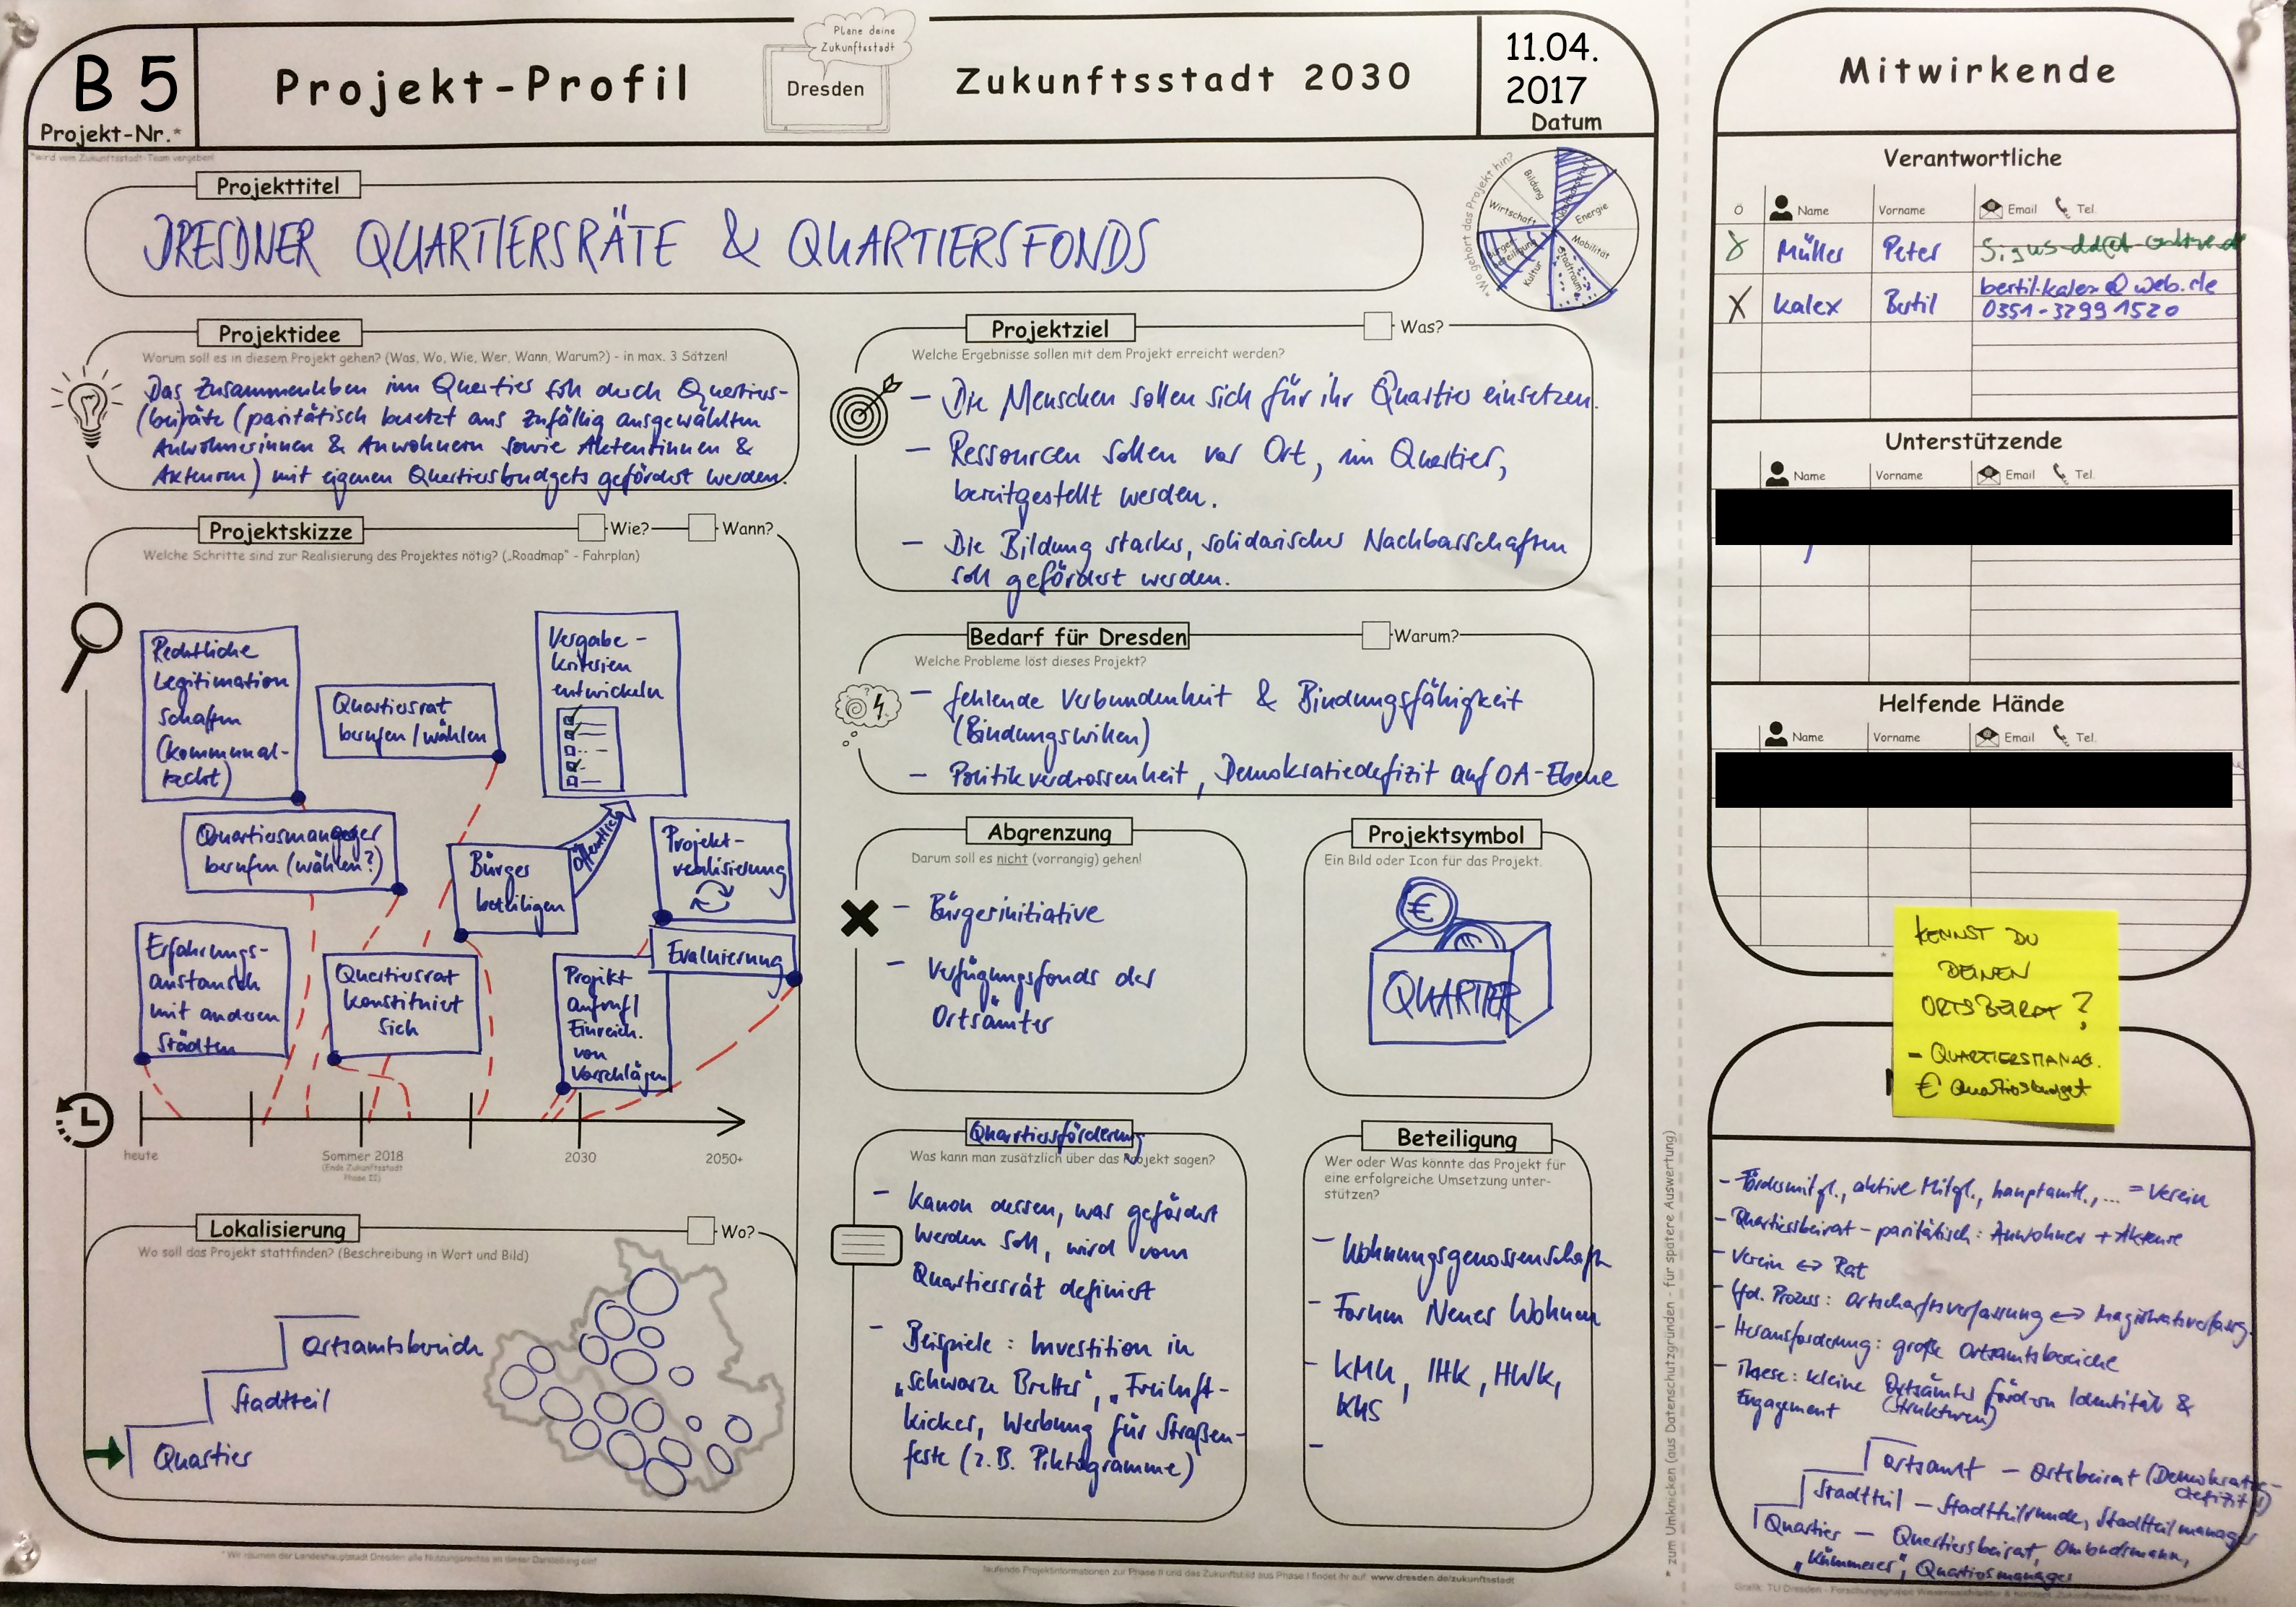 B 5
Projekt-Nr.*
*wird vom Zukunftsstadt-Team vergeben!
Projekt-Profil
Plane deine
Zukunftsstadt
Dresden
Zukunftsstadt 2030
11.04.
2017
Datum
Projekttitel
DRESDNER QUARTIERSRÄTE & QUARTIERSFONDS
*Wo gehört das Projekt hin?
Bildung
Nachbarschaft
Energie
Mobilität
Stadtraum
Kultur
Bürger-
beteiligung
Wirtschaft
Projektidee
Worum soll es in diesem Projekt gehen? (Was, Wo, Wie, Wer, Wann, Warum?) - in max. 3 Sätzen!
Das Zusammenleben im Quartier soll durch Quartiers-
(bei)räte (paritätisch besetzt aus zufällig ausgewählten
Anwohnerinnen & Anwohnern sowie Akteurinnen &
Akteuren) mit eigenen Quartiersbudgets gefördert werden.
Projektskizze
Wie?
Wann?
Welche Schritte sind zur Realisierung des Projektes nötig? („Roadmap" - Fahrplan)
Rechtliche
Legitimation
schaffen
(kommunal-
recht)
Quartiersrat
berufen/wählen
Vergabe-
kriterien
entwickeln
Quartiersmanager
berufen (wählen?)
Bürger
beteiligen
öffentlich
Projekt-
realisierung
Evaluierung
Erfahrungs-
austausch
mit anderen
Städten
Quartiersrat
konstituiert
sich
Projekt
aufruf/
Einreich.
von
Vorschlägen
heute
Sommer 2018
(Ende Zukunftsstadt
Phase II)
2030
2050+
Lokalisierung
Wo?
Wo soll das Projekt stattfinden? (Beschreibung in Wort und Bild)
Ortsamtsbereich
Stadtteil
Quartier
Projektziel
Was?
Welche Ergebnisse sollen mit dem Projekt erreicht werden?
- Die Menschen sollen sich für ihr Quartier einsetzen.
- Ressourcen sollen vor Ort, im Quartier,
bereitgestellt werden.
- Die Bildung starker, solidarischer Nachbarschaften
soll gefördert werden.
Bedarf für Dresden
Warum?
Welche Probleme löst dieses Projekt?
- fehlende Verbundenheit & Bindungsfähigkeit
(Bindungswillen)
- Politikverdrossenheit, Demokratiedefizit auf OA-Ebene
Abgrenzung
Darum soll es nicht (vorrangig) gehen!
- Bürgerinitiative
- Verfügungsfonds der
Ortsämter
Projektsymbol
Ein Bild oder Icon für das Projekt.
€
QUARTIER
Quartiersförderung
Was kann man zusätzlich über das Projekt sagen?
- Kanon dessen, was gefördert
werden soll, wird vom
Quartiersrat definiert
- Beispiele: Investition in
„schwarze Bretter", „Freiluft-
kicker, Werbung für Straßen-
feste (z.B. Piktogramme)
Beteiligung
Wer oder Was könnte das Projekt für
eine erfolgreiche Umsetzung unter-
stützen?
- Wohnungsgenossenschaft
- Forum Neuer Wohnen
- KMU, IHK, HWK,
KHS
-
* Wir räumen der Landeshauptstadt Dresden alle Nutzungsrechte an dieser Darstellung ein!
laufende Projektinformationen zur Phase II und das Zukunftsbild aus Phase I findet ihr auf: www.dresden.de/zukunftsstadt
* zum Umknicken (aus Datenschutzgründen - für spätere Auswertung)
Mitwirkende
Verantwortliche
Name Vorname Email Tel.
Müller Peter
X Kalex Bertil bertil.kalex@web.de
0351-32991520
Unterstützende
Name Vorname Email Tel.
Helfende Hände
Name Vorname Email Tel.
KENNST DU
DEINEN
ORTSBEIRAT?
- QUARTIERSMANAG.
€ Quartiersbudget
- Fördermitgl., aktive Mitgl., hauptamtl., ... = Verein
- Quartiersbeirat - paritätisch: Anwohner + Akteure
- Verein <-> Rat
- lfd. Prozess: Ortschaftsverfassung <-> Magistratsverfassg.
- Herausforderung: große Ortsamtsbereiche
- These: kleine Ortsämter fördern Identität &
Engagement (Strukturen)
Ortsamt - Ortsbeirat (Demokratie-
defizit!)
Stadtteil - Stadtteilrunde, Stadtteilmanager
Quartier - Quartiersbeirat, Ombudsmann,
„Kümmerer", Quartiersmanager